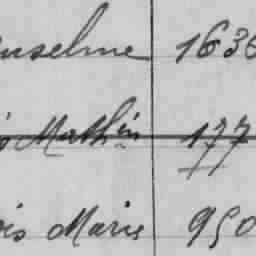 nselme 1636
is Mathin 177
ois Marie 950